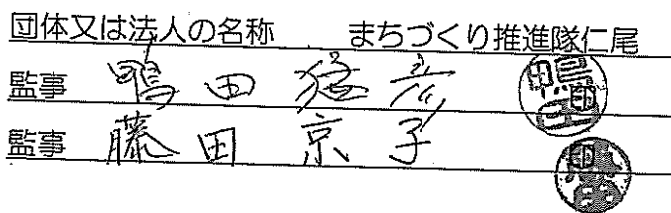 団体又は法人の名称 まちづくり推進隊仁尾
監事 鴨田猛彦
監事 藤田京子